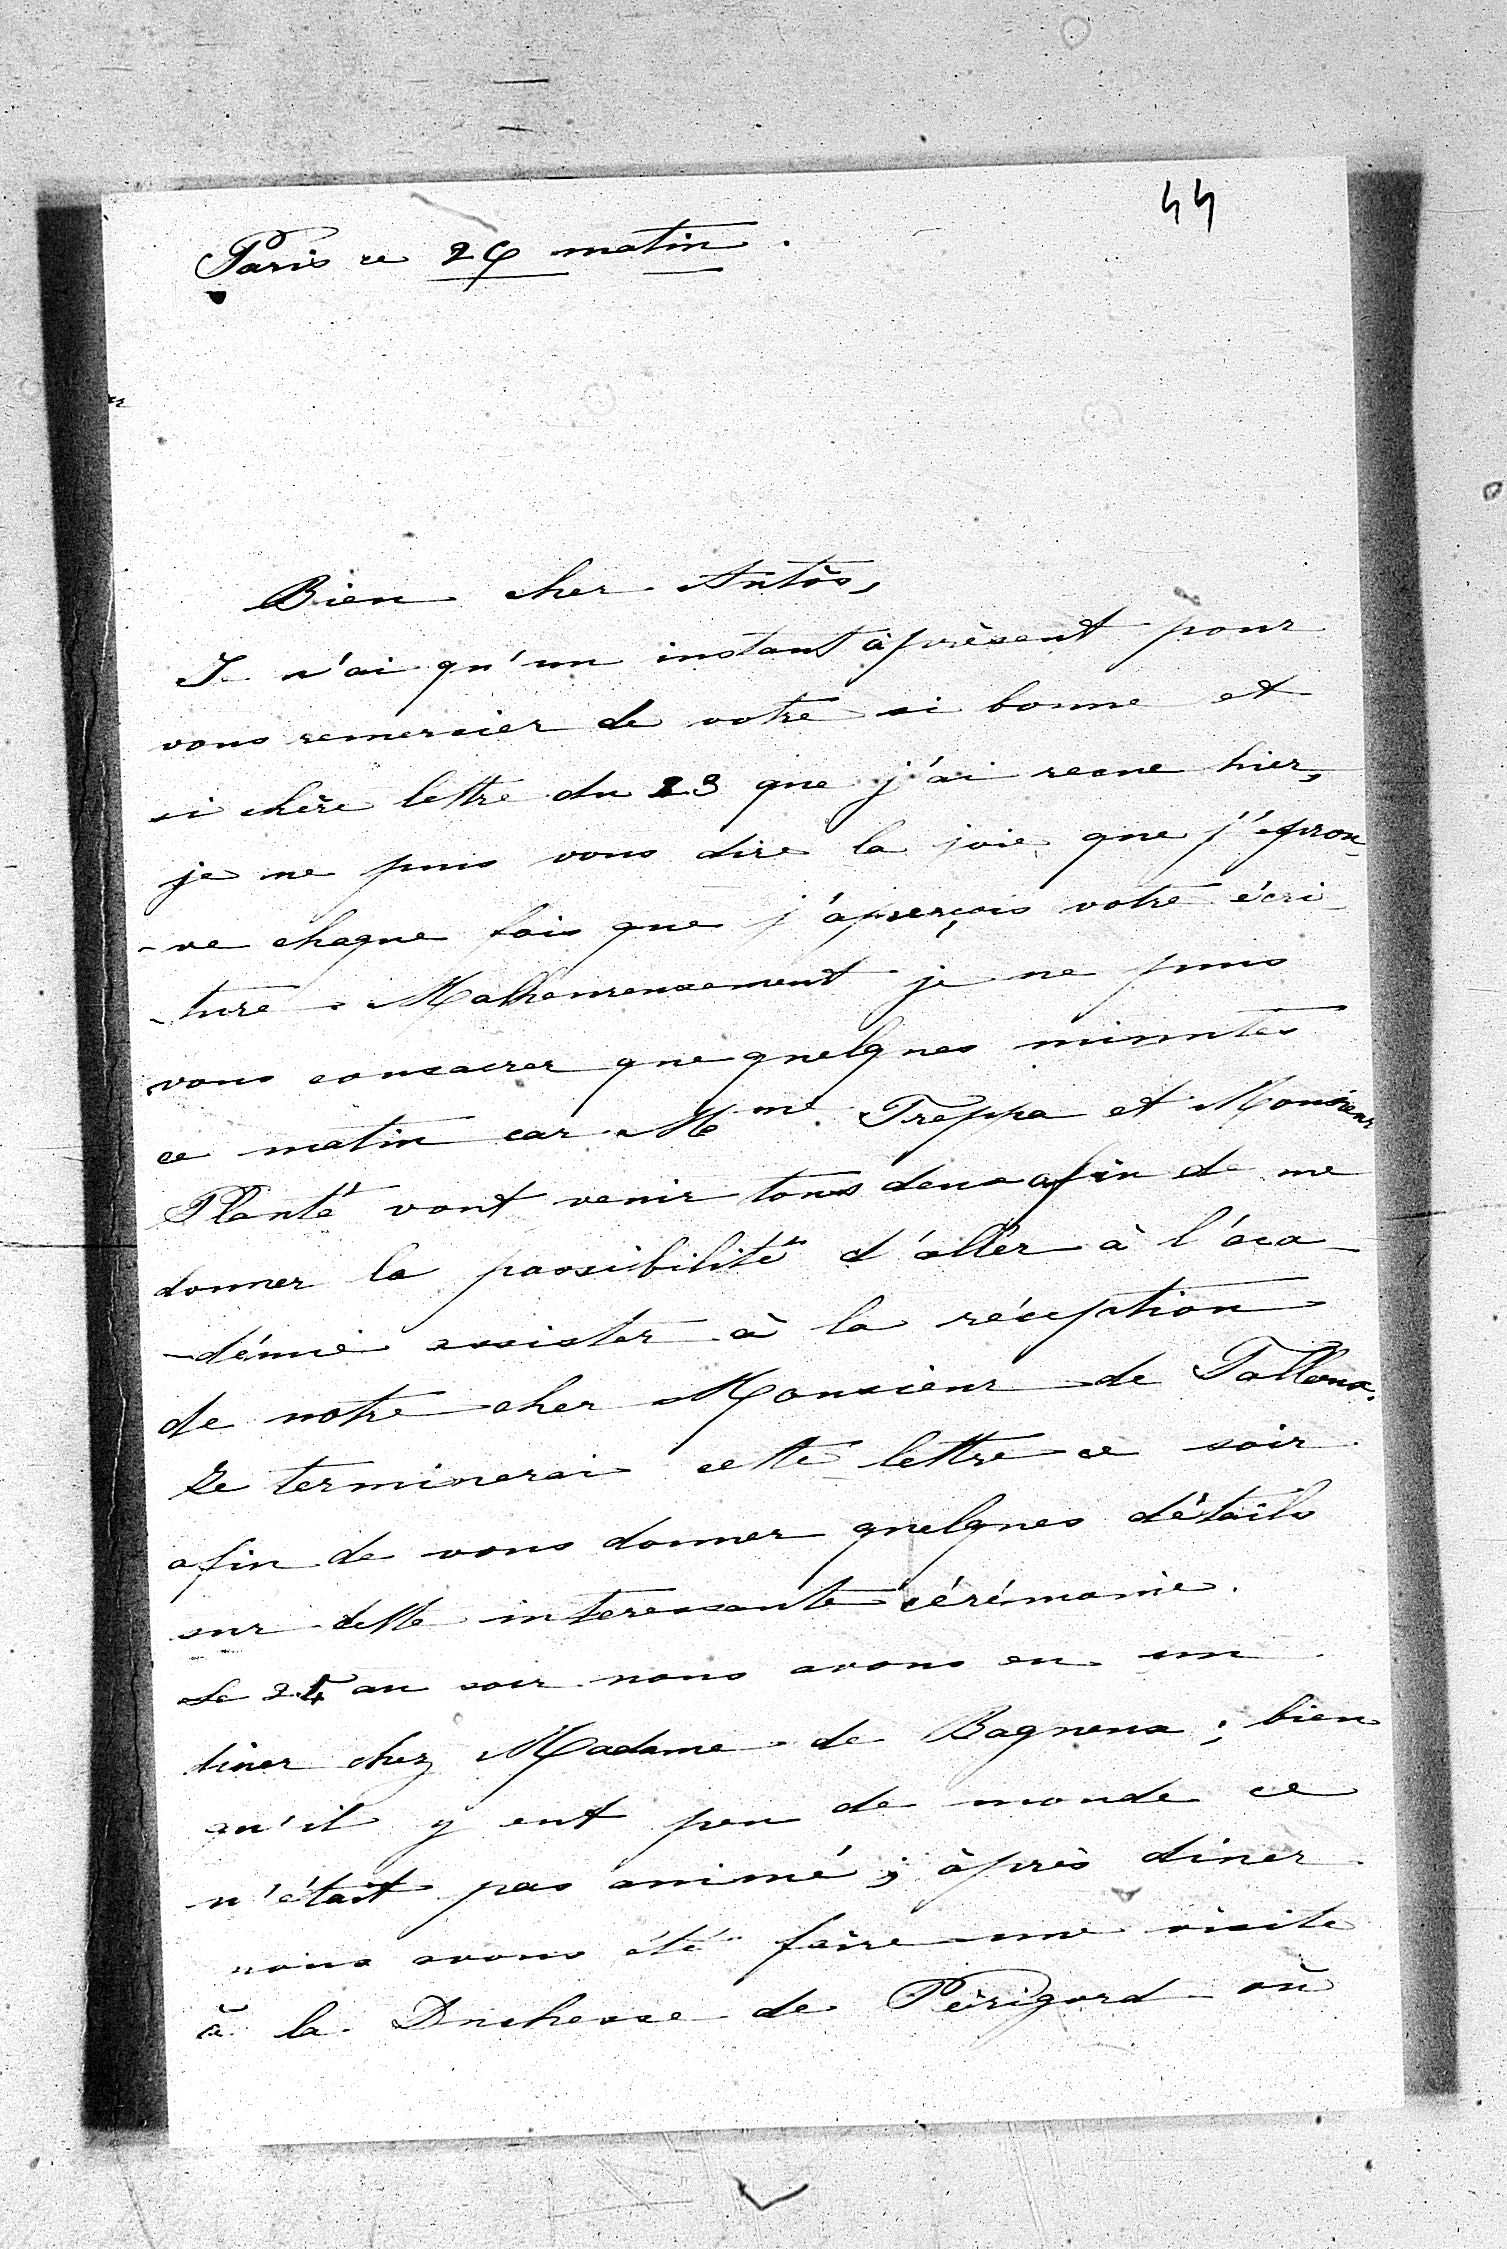 44
Paris ce 26 matin.
Bien cher Antos,
Je n'ai qu'un instant à présent pour
vous remercier de votre si bonne et
si chère lettre du 23 que j'ai recue hier,
je ne puis vous dire la joie que j'éprou-
-ve chaque fois que j'aperçois votre écri-
-ture. Malheureusement je ne puis
vous consacrer que quelques minutes
ce matin car Mme. Treppa et Monsieur
Planté vont venir tous deux afin de me
donner la possibilité d'aller à l'aca-
-démie assister à la réception
de notre cher Monsieur de Falloux.
Je terminerai cette lettre ce soir
afin de vous donner quelques détails
sur cette interessante cérémonie.
Le 24 au soir nous avons eu un
diner chez Madame de Bagneux; bien
qu'il y eut peu de monde ce
n'était pas animé; àprès diner
nous avons été faire une visite
à la Duchesse de Périgord où